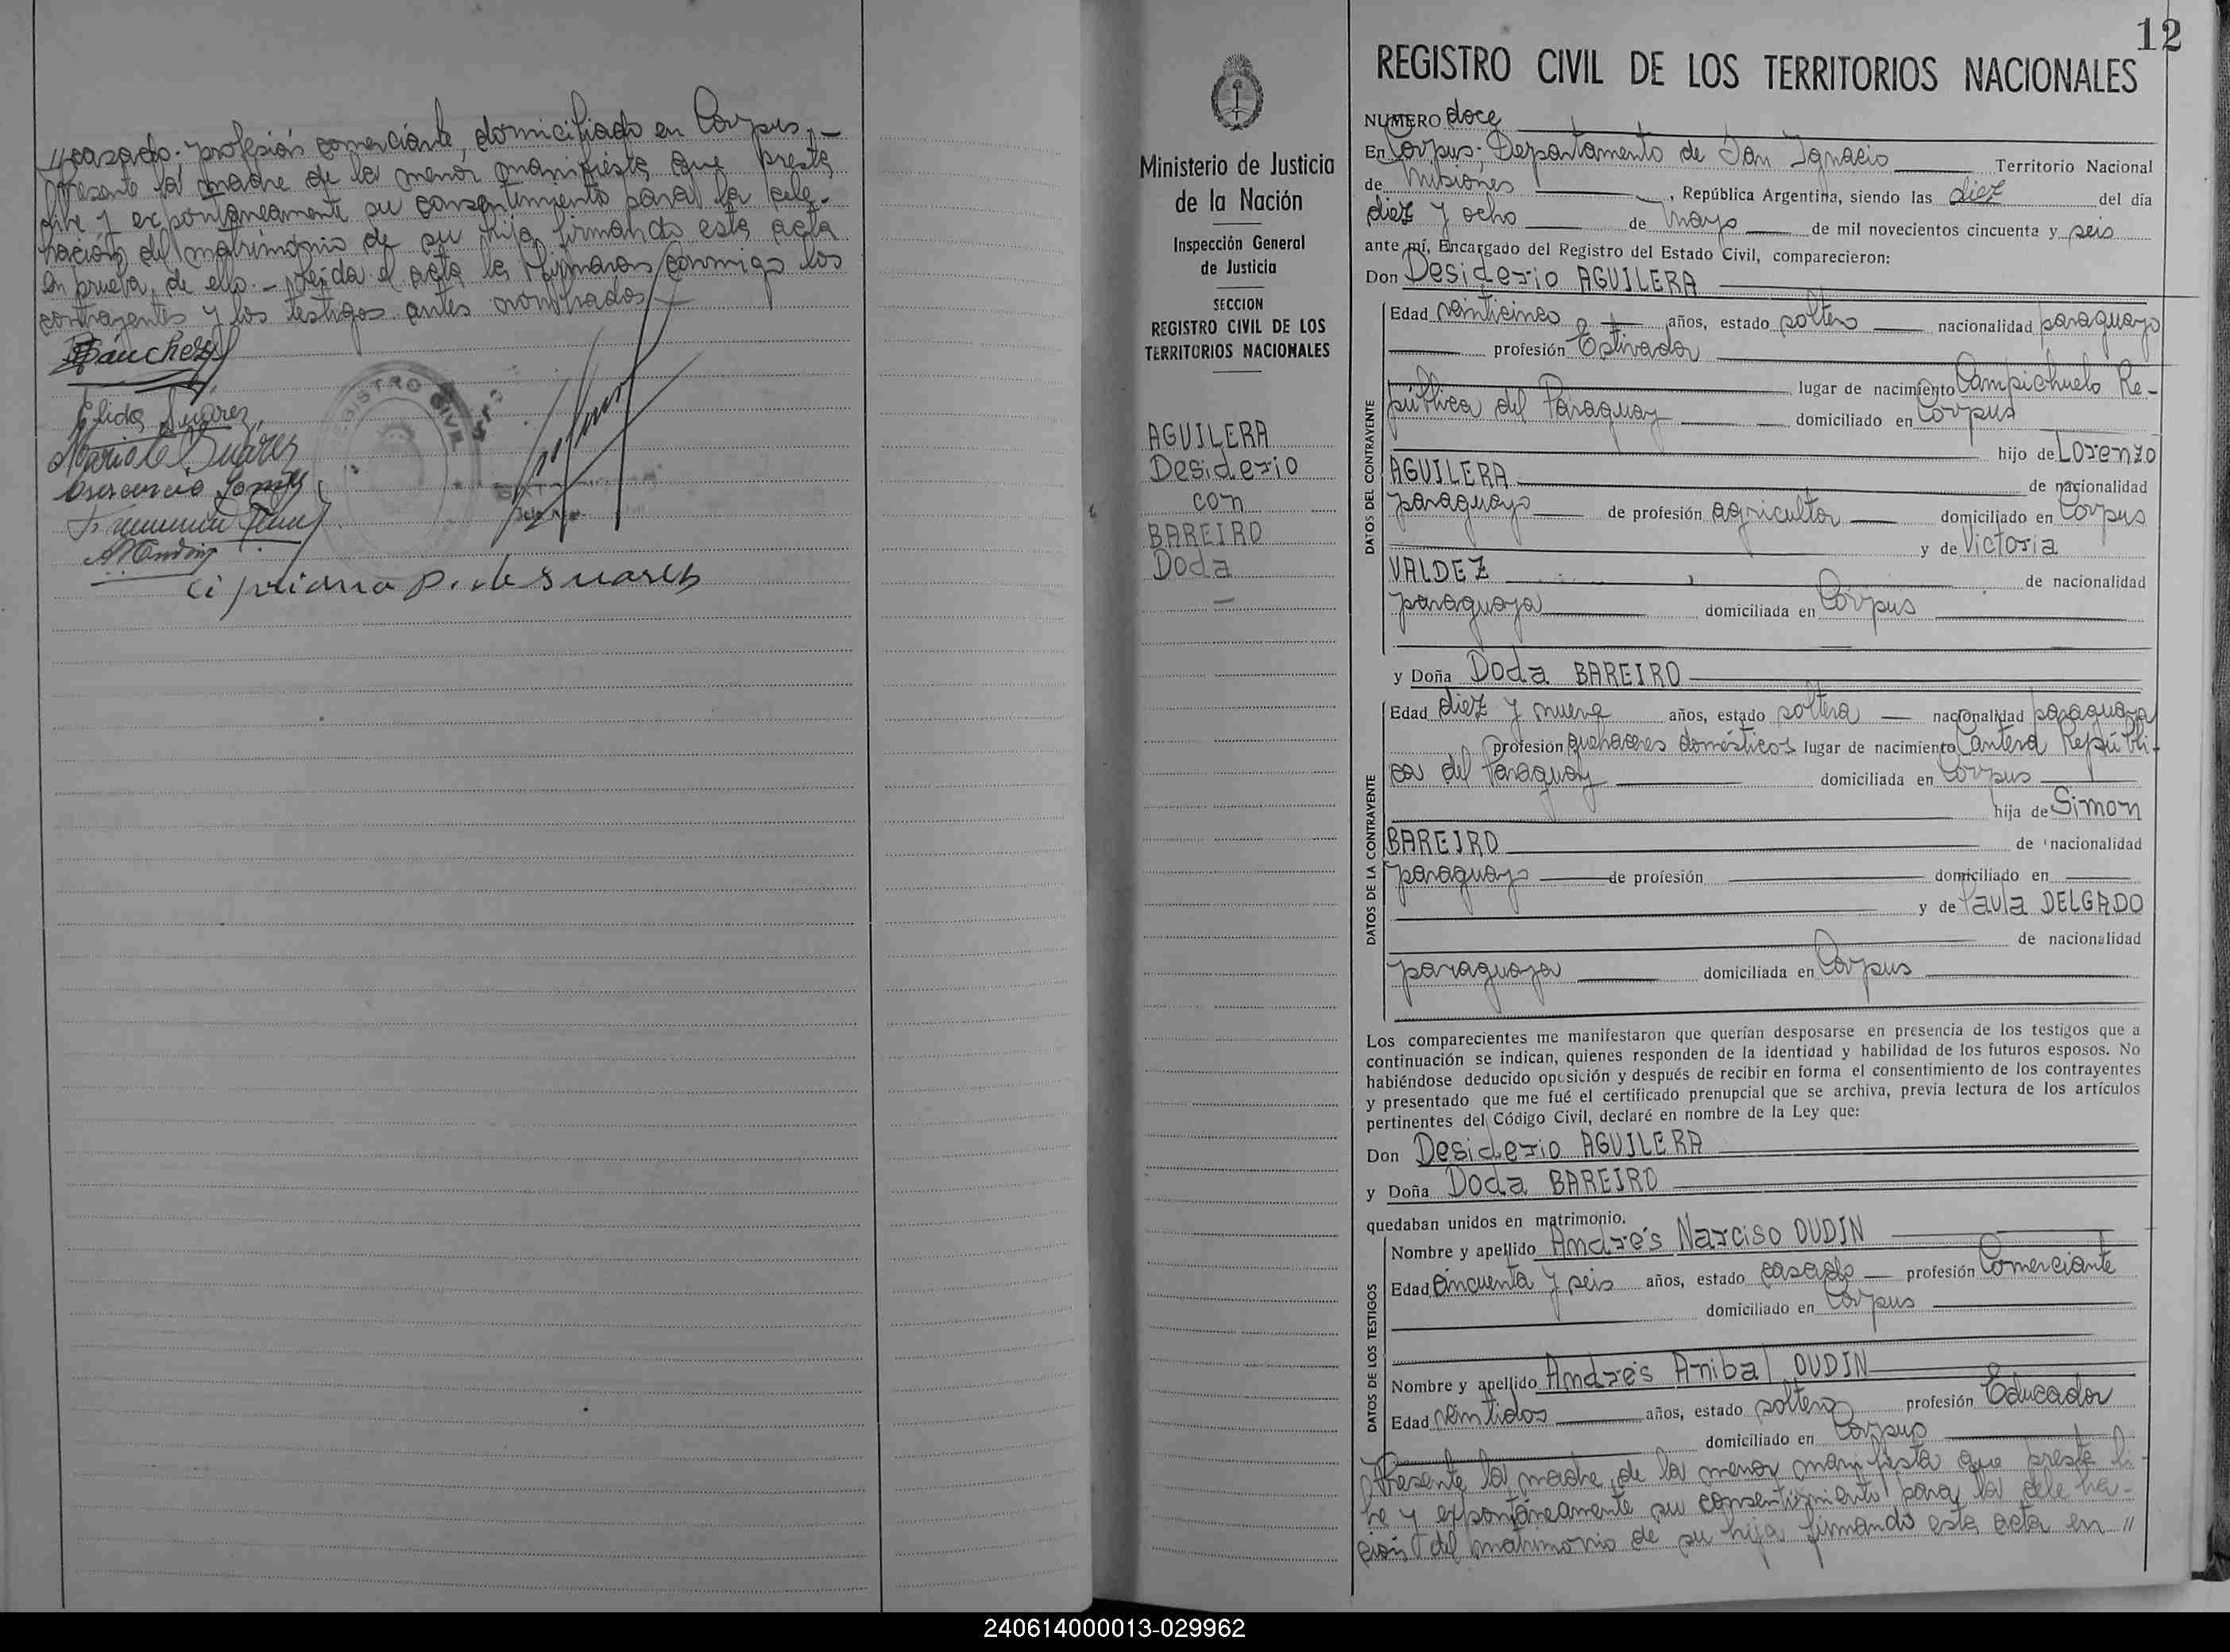 //casado. profesión comerciante, domiciliado en Corpus.-
Presente la madre de la menor manifiesta que presta
libre y expontaneamente su consentimiento para la cele-
bración del matrimonio de su hija firmando esta acta
en prueba de ello.- Leida el acta la firmaron conmigo los
contrayentes y los testigos antes nombrados
Sánchez
Elida Suárez
Suárez
Cipriana P. de Suarez
REGISTRO CIVIL
12
Ministerio de Justicia
de la Nación
Inspección General
de Justicia
SECCION
REGISTRO CIVIL DE LOS
TERRITORIOS NACIONALES
AGUILERA
Desiderio
con
BAREIRO
Doda
REGISTRO CIVIL DE LOS TERRITORIOS NACIONALES
NUMERO doce
En Corpus; Departamento de San Ignacio Territorio Nacional
de Misiones, República Argentina, siendo las diez del día
diez y ocho de Mayo de mil novecientos cincuenta y seis
ante mí, Encargado del Registro del Estado Civil, comparecieron:
Don Desiderio AGUILERA
DATOS DEL CONTRAYENTE
Edad veinticinco años, estado soltero nacionalidad paraguayo
profesión Estivador
lugar de nacimiento Campichuelo Re-
pública del Paraguay domiciliado en Corpus
hijo de Lorenzo
AGUILERA de nacionalidad
paraguayo de profesión agricultor domiciliado en Corpus
y de Victoria
VALDEZ de nacionalidad
paraguaya domiciliada en Corpus
y Doña Doda BAREIRO
DATOS DE LA CONTRAYENTE
Edad diez y nueve años, estado soltera nacionalidad paraguaya
profesión quehaceres domésticos lugar de nacimiento Cantera Repúbli-
ca del Paraguay domiciliada en Corpus
hija de Simon
BAREIRO de nacionalidad
paraguayo de profesión domiciliado en
y de Paula DELGADO
de nacionalidad
paraguaya domiciliada en Corpus
Los comparecientes me manifestaron que querían desposarse en presencia de los testigos que a
continuación se indican, quienes responden de la identidad y habilidad de los futuros esposos. No
habiéndose deducido oposición y después de recibir en forma el consentimiento de los contrayentes
y presentado que me fué el certificado prenupcial que se archiva, previa lectura de los artículos
pertinentes del Código Civil, declaré en nombre de la Ley que:
Don Desiderio AGUILERA
y Doña Doda BAREIRO
quedaban unidos en matrimonio.
DATOS DE LOS TESTIGOS
Nombre y apellido Andrés Narciso OUDIN
Edad cincuenta y seis años, estado casado profesión Comerciante
domiciliado en Corpus
Nombre y apellido Andrés Anibal OUDIN
Edad veintidos años, estado soltero profesión Educador
domiciliado en Corpus
Presente la madre de la menor manifiesta que presta li-
bre y expontáneamente su consentimiento para la celebra-
ción del matrimonio de su hija firmando esta acta en //
240614000013-029962